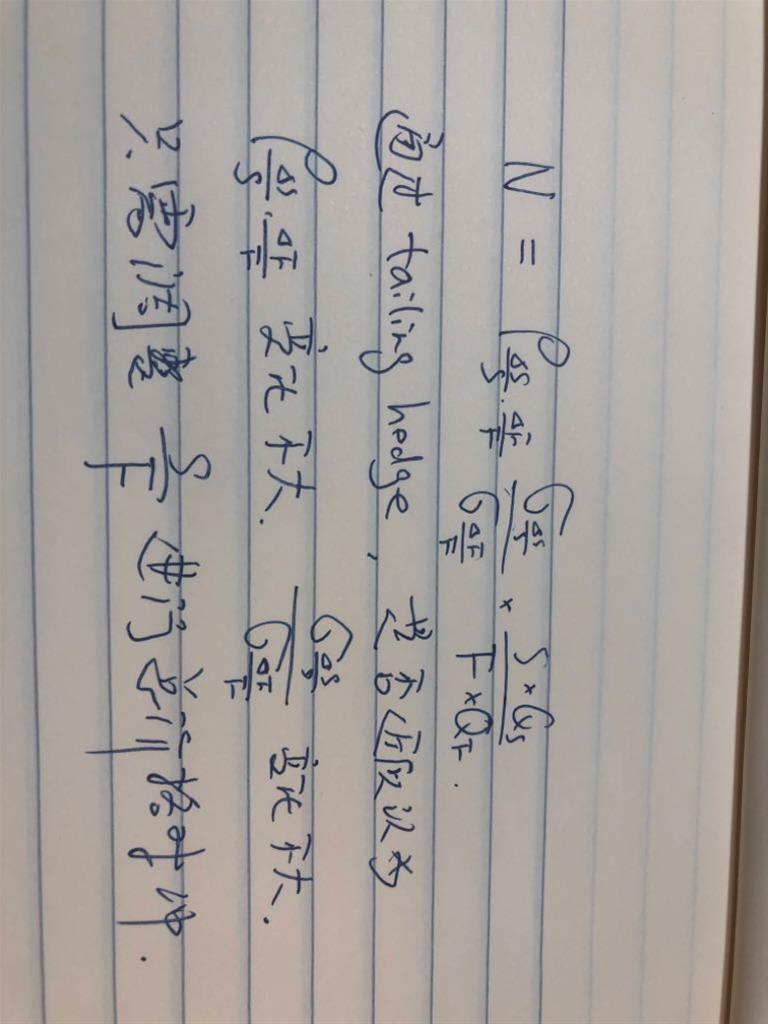 N = ρ_{ΔS/S, ΔF/F} σ_{ΔS/S} / σ_{ΔF/F} × (S × Q_S) / (F × Q_F).
通过 tailing hedge, 是否近似认为
ρ_{ΔS/S, ΔF/F} 变化不大. σ_{ΔS/S} / σ_{ΔF/F} 变化不大.
只需调整 S/F 进行尾部对冲.